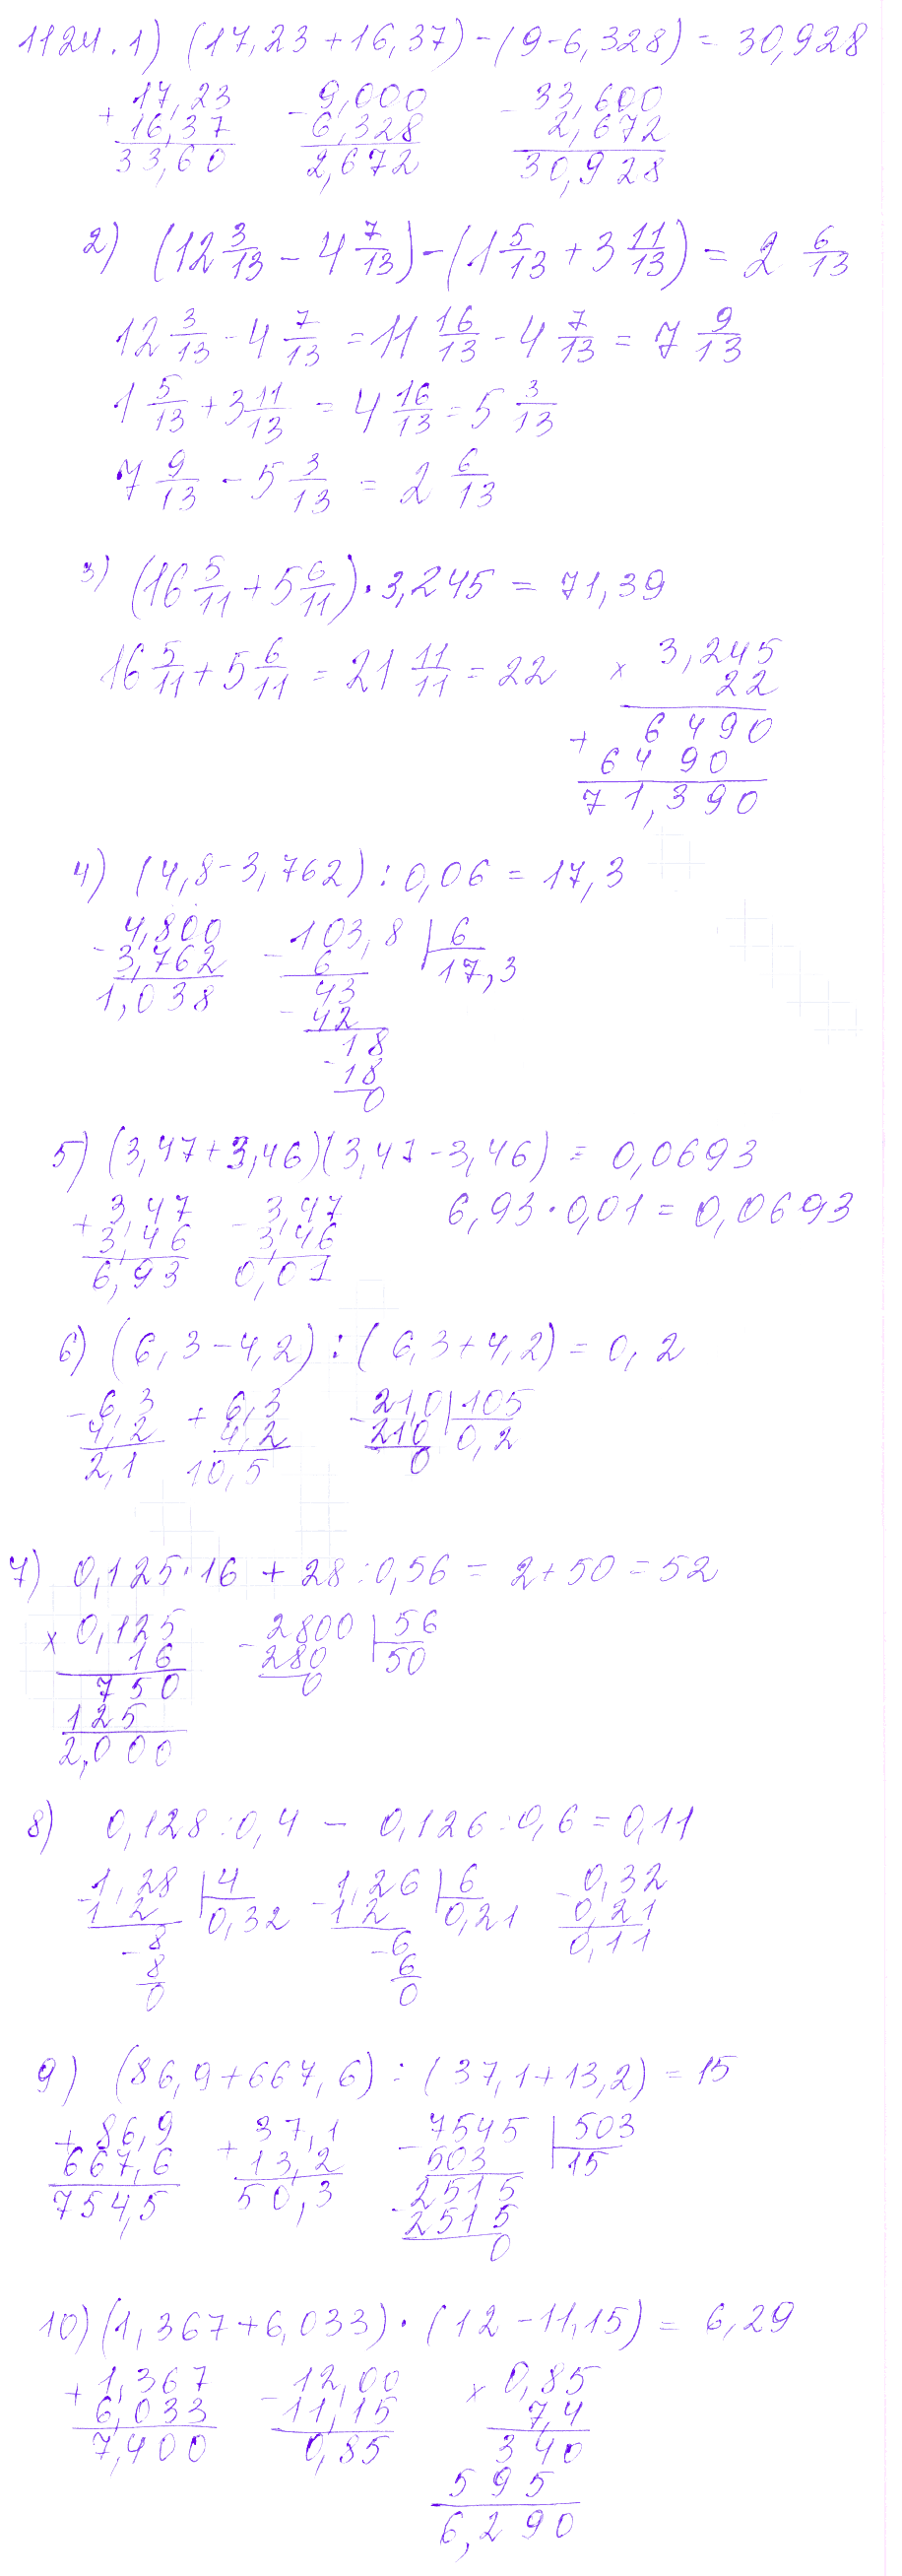 1124. 1) (17,23 + 16,37) - (9 - 6,328) = 30,928
+ 17,23 - 9,000 - 33,600
16,37 6,328 2,672
33,60 2,672 30,928
2) (12 3/13 - 4 7/13) - (1 5/13 + 3 11/13) = 2 6/13
12 3/13 - 4 7/13 = 11 16/13 - 4 7/13 = 7 9/13
1 5/13 + 3 11/13 = 4 16/13 = 5 3/13
7 9/13 - 5 3/13 = 2 6/13
3) (16 5/11 + 5 6/11) · 3,245 = 71,39
16 5/11 + 5 6/11 = 21 11/11 = 22 x 3,245
22
+ 6490
6490
71,390
4) (4,8 - 3,762) : 0,06 = 17,3
- 4,800 - 103,8 | 6
3,762 6 17,3
1,038 43
- 42
- 18
18
0
5) (3,47 + 3,46)(3,47 - 3,46) = 0,0693
+ 3,47 - 3,47 6,93 · 0,01 = 0,0693
3,46 3,46
6,93 0,01
6) (6,3 - 4,2) : (6,3 + 4,2) = 0,2
- 6,3 + 6,3 - 21,0 | 105
4,2 4,2 210 0,2
2,1 10,5 0
7) 0,125 · 16 + 28 : 0,56 = 2 + 50 = 52
x 0,125 - 2800 | 56
16 280 50
750 0
125
2,000
8) 0,128 : 0,4 - 0,126 : 0,6 = 0,11
- 1,28 | 4 - 1,26 | 6 - 0,32
1 2 0,32 1 2 0,21 0,21
- 8 - 6 0,11
8 6
0 0
9) (86,9 + 667,6) : (37,1 + 13,2) = 15
+ 86,9 + 37,1 - 7545 | 503
667,6 13,2 503 15
754,5 50,3 - 2515
2515
0
10) (1,367 + 6,033) · (12 - 11,15) = 6,29
+ 1,367 - 12,00 x 0,85
6,033 11,15 7,4
7,400 0,85 340
595
6,290